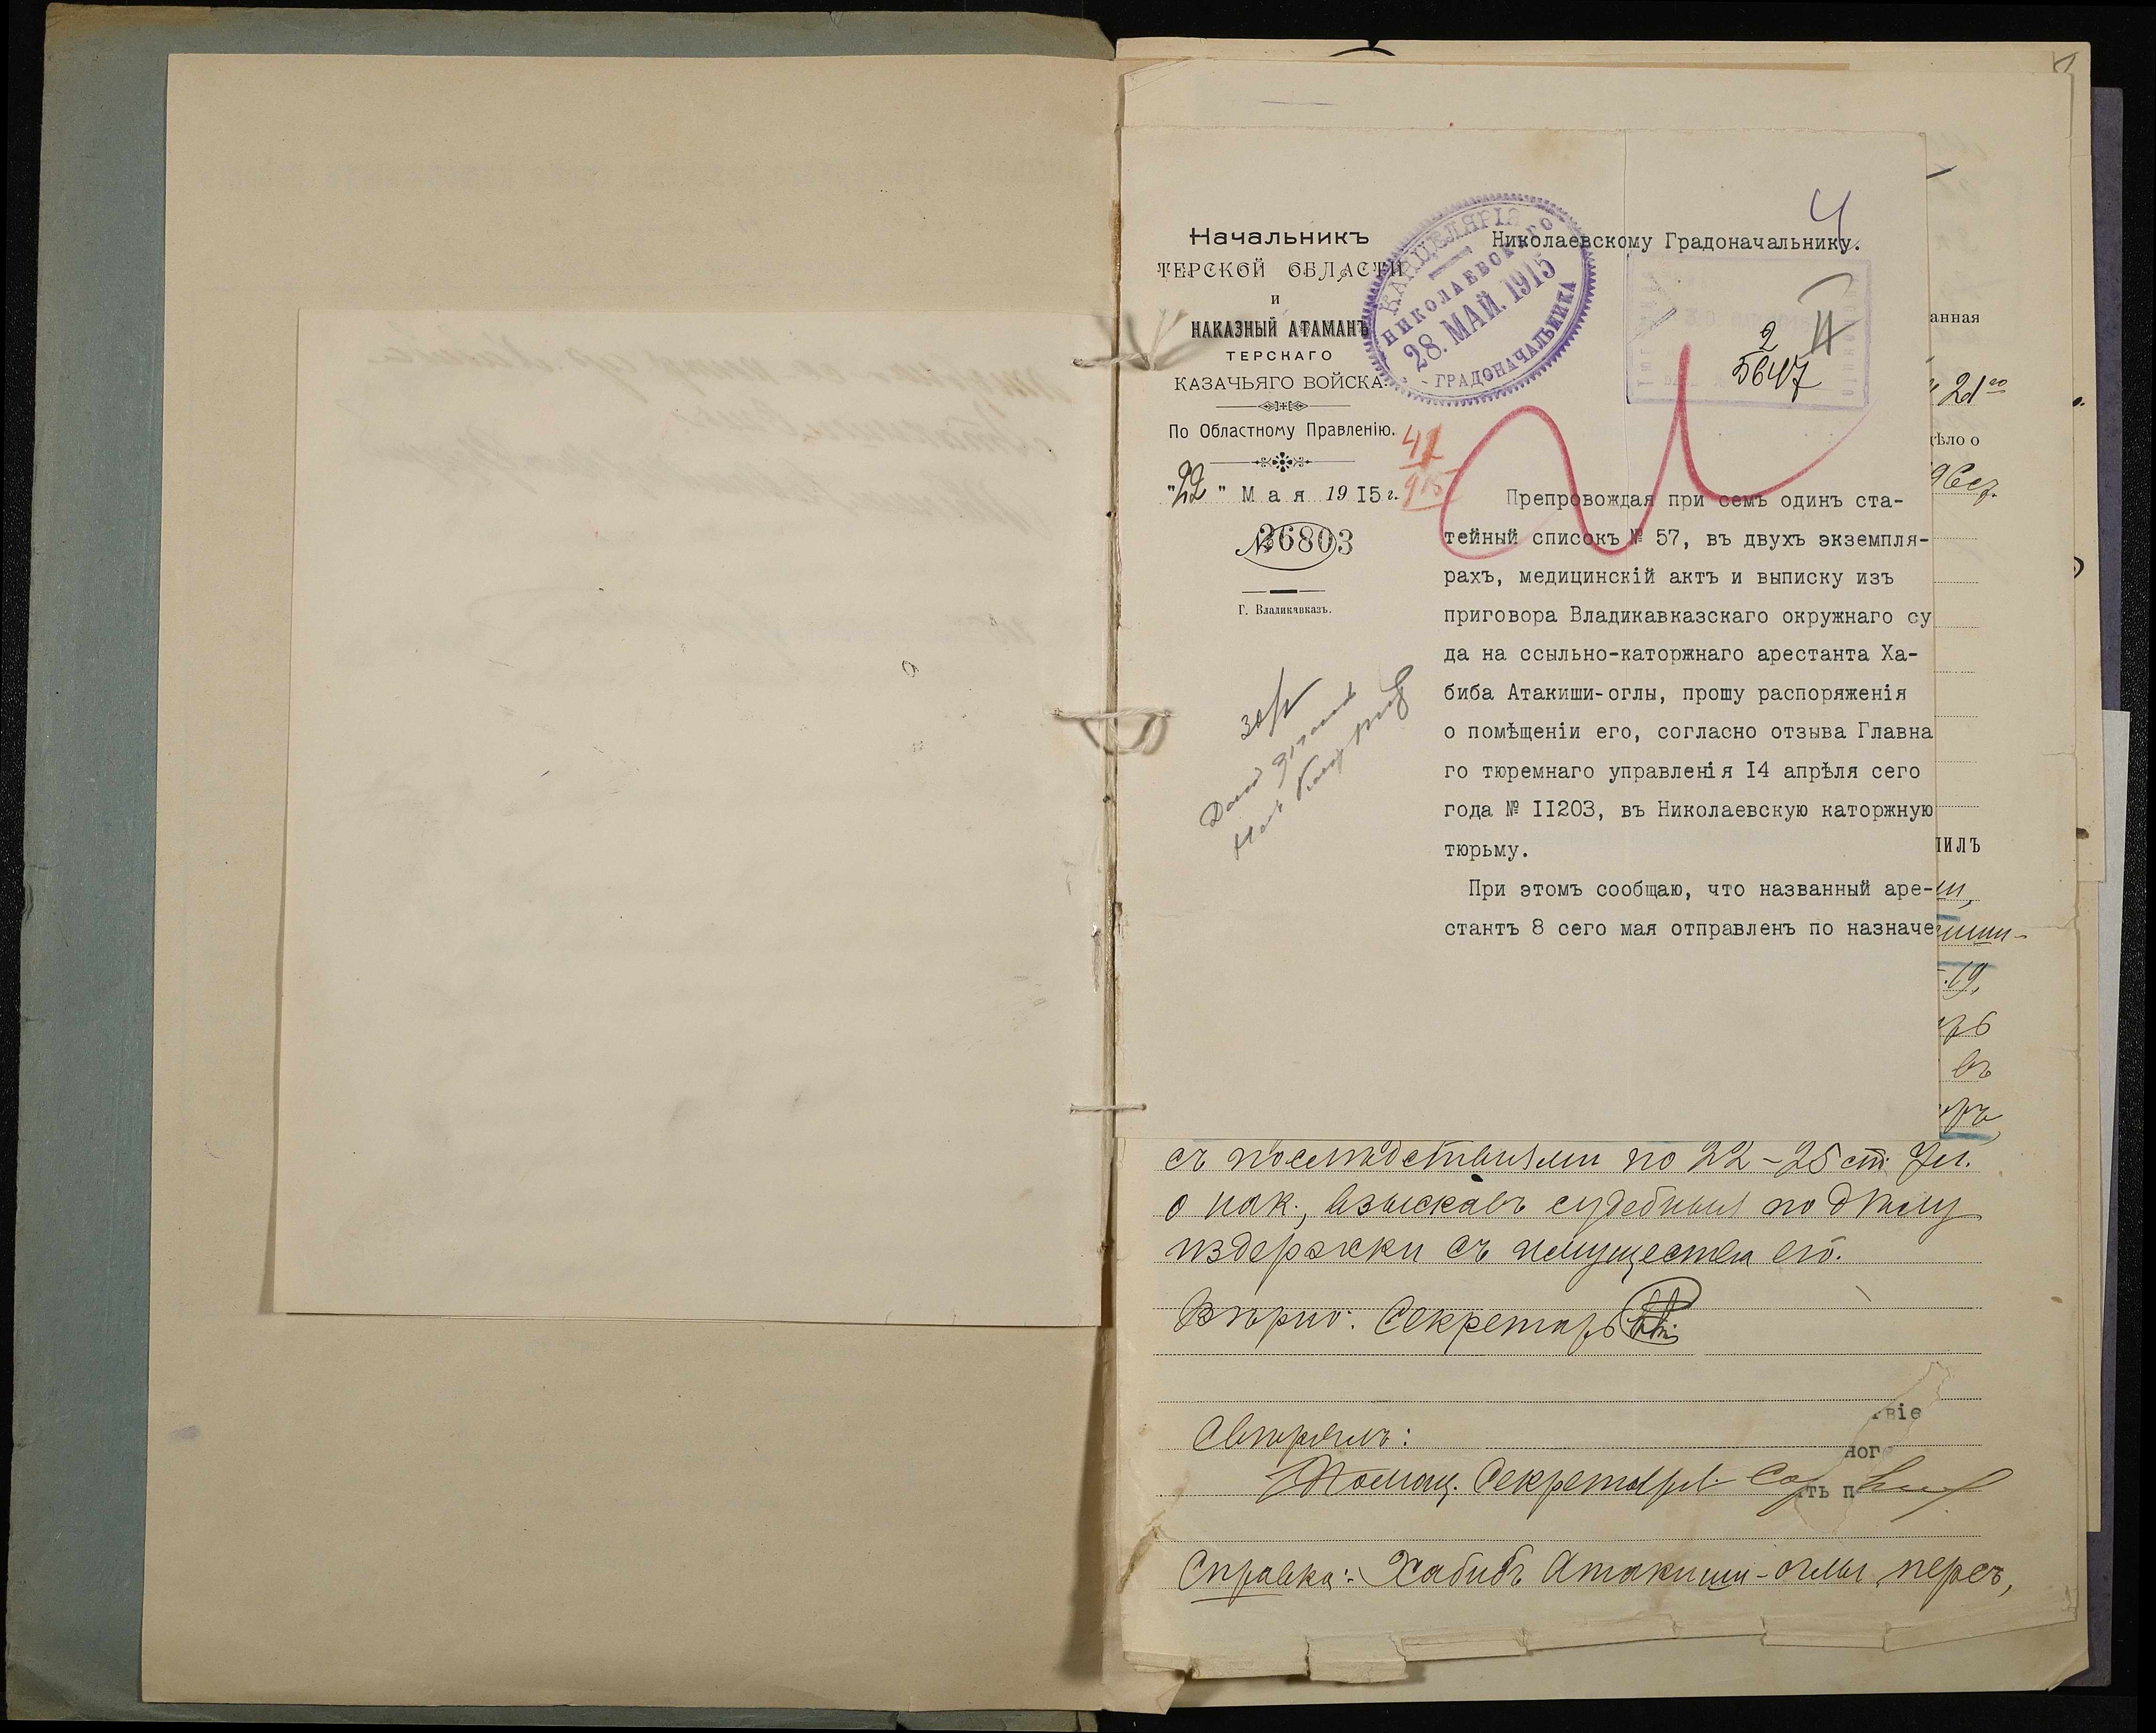 Начальникъ
ТЕРСКОЙ ОБЛАСТИ
и
НАКАЗНЫЙ АТАМАНЪ
ТЕРСКАГО
КАЗАЧЬЯГО ВОЙСКА.
По Областному Правленію.
"22" Мая 1915 г.
№ 26803
Г. Владикавказъ.
КАНЦЕЛЯРІЯ
НИКОЛАЕВСКОГО
28. МАЙ. 1915
ГРАДОНАЧАЛЬНИКА
4
Николаевскому Градоначальнику.
2
5647
41
915
Препровождая при семъ одинъ ста-
тейный списокъ № 57, въ двухъ экземпля-
рахъ, медицинскій актъ и выписку изъ
приговора Владикавказскаго окружнаго су
да на ссыльно-каторжнаго арестанта Ха-
биба Атакиши-оглы, прошу распоряженія
о помѣщеніи его, согласно отзыва Главна
го тюремнаго управленія I4 апрѣля сего
года № II203, въ Николаевскую каторжную
тюрьму.
При этомъ сообщаю, что названный аре-
стантъ 8 сего мая отправленъ по назначе
анная
21го
ѣло о
ИЛЪ
въ
съ послѣдствіями по 22-25 ст. Ул.
о нак., взыскавъ судебныя по дѣлу
издержки съ имущества его.
Вѣрно: Секретарь
твіе
Свѣрялъ:
ног
Помощ. Секретаря
ть п
Справка: Хабибъ Атакиши-оглы, персъ,